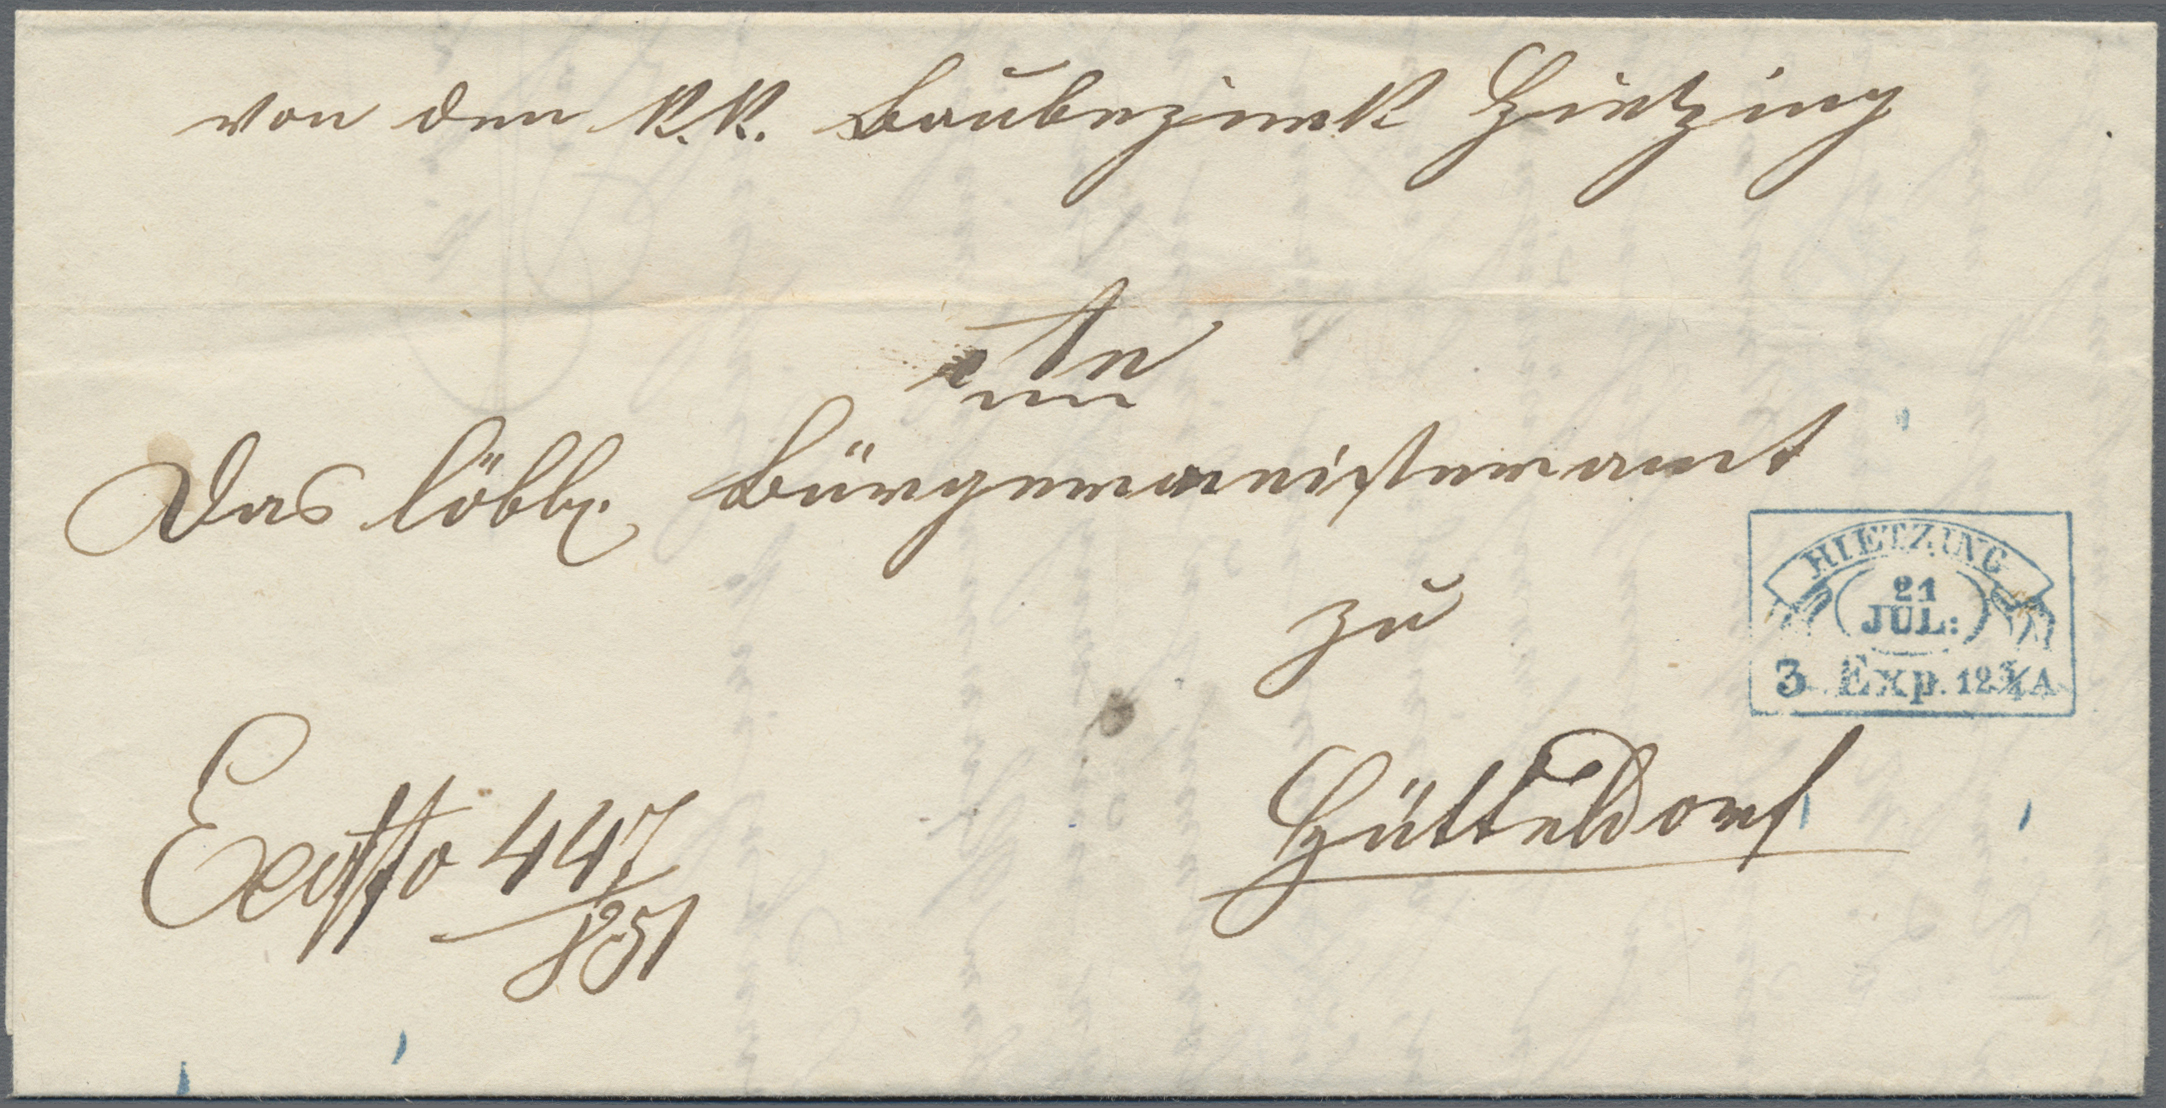 von dem k.k. Baubezirk Hietzing
An
Das löbl. Bürgermeisteramt
zu
Hütteldorf
HIETZING
21
JUL:
3 Exp. 12 3/4 A
Exoffo 447
851